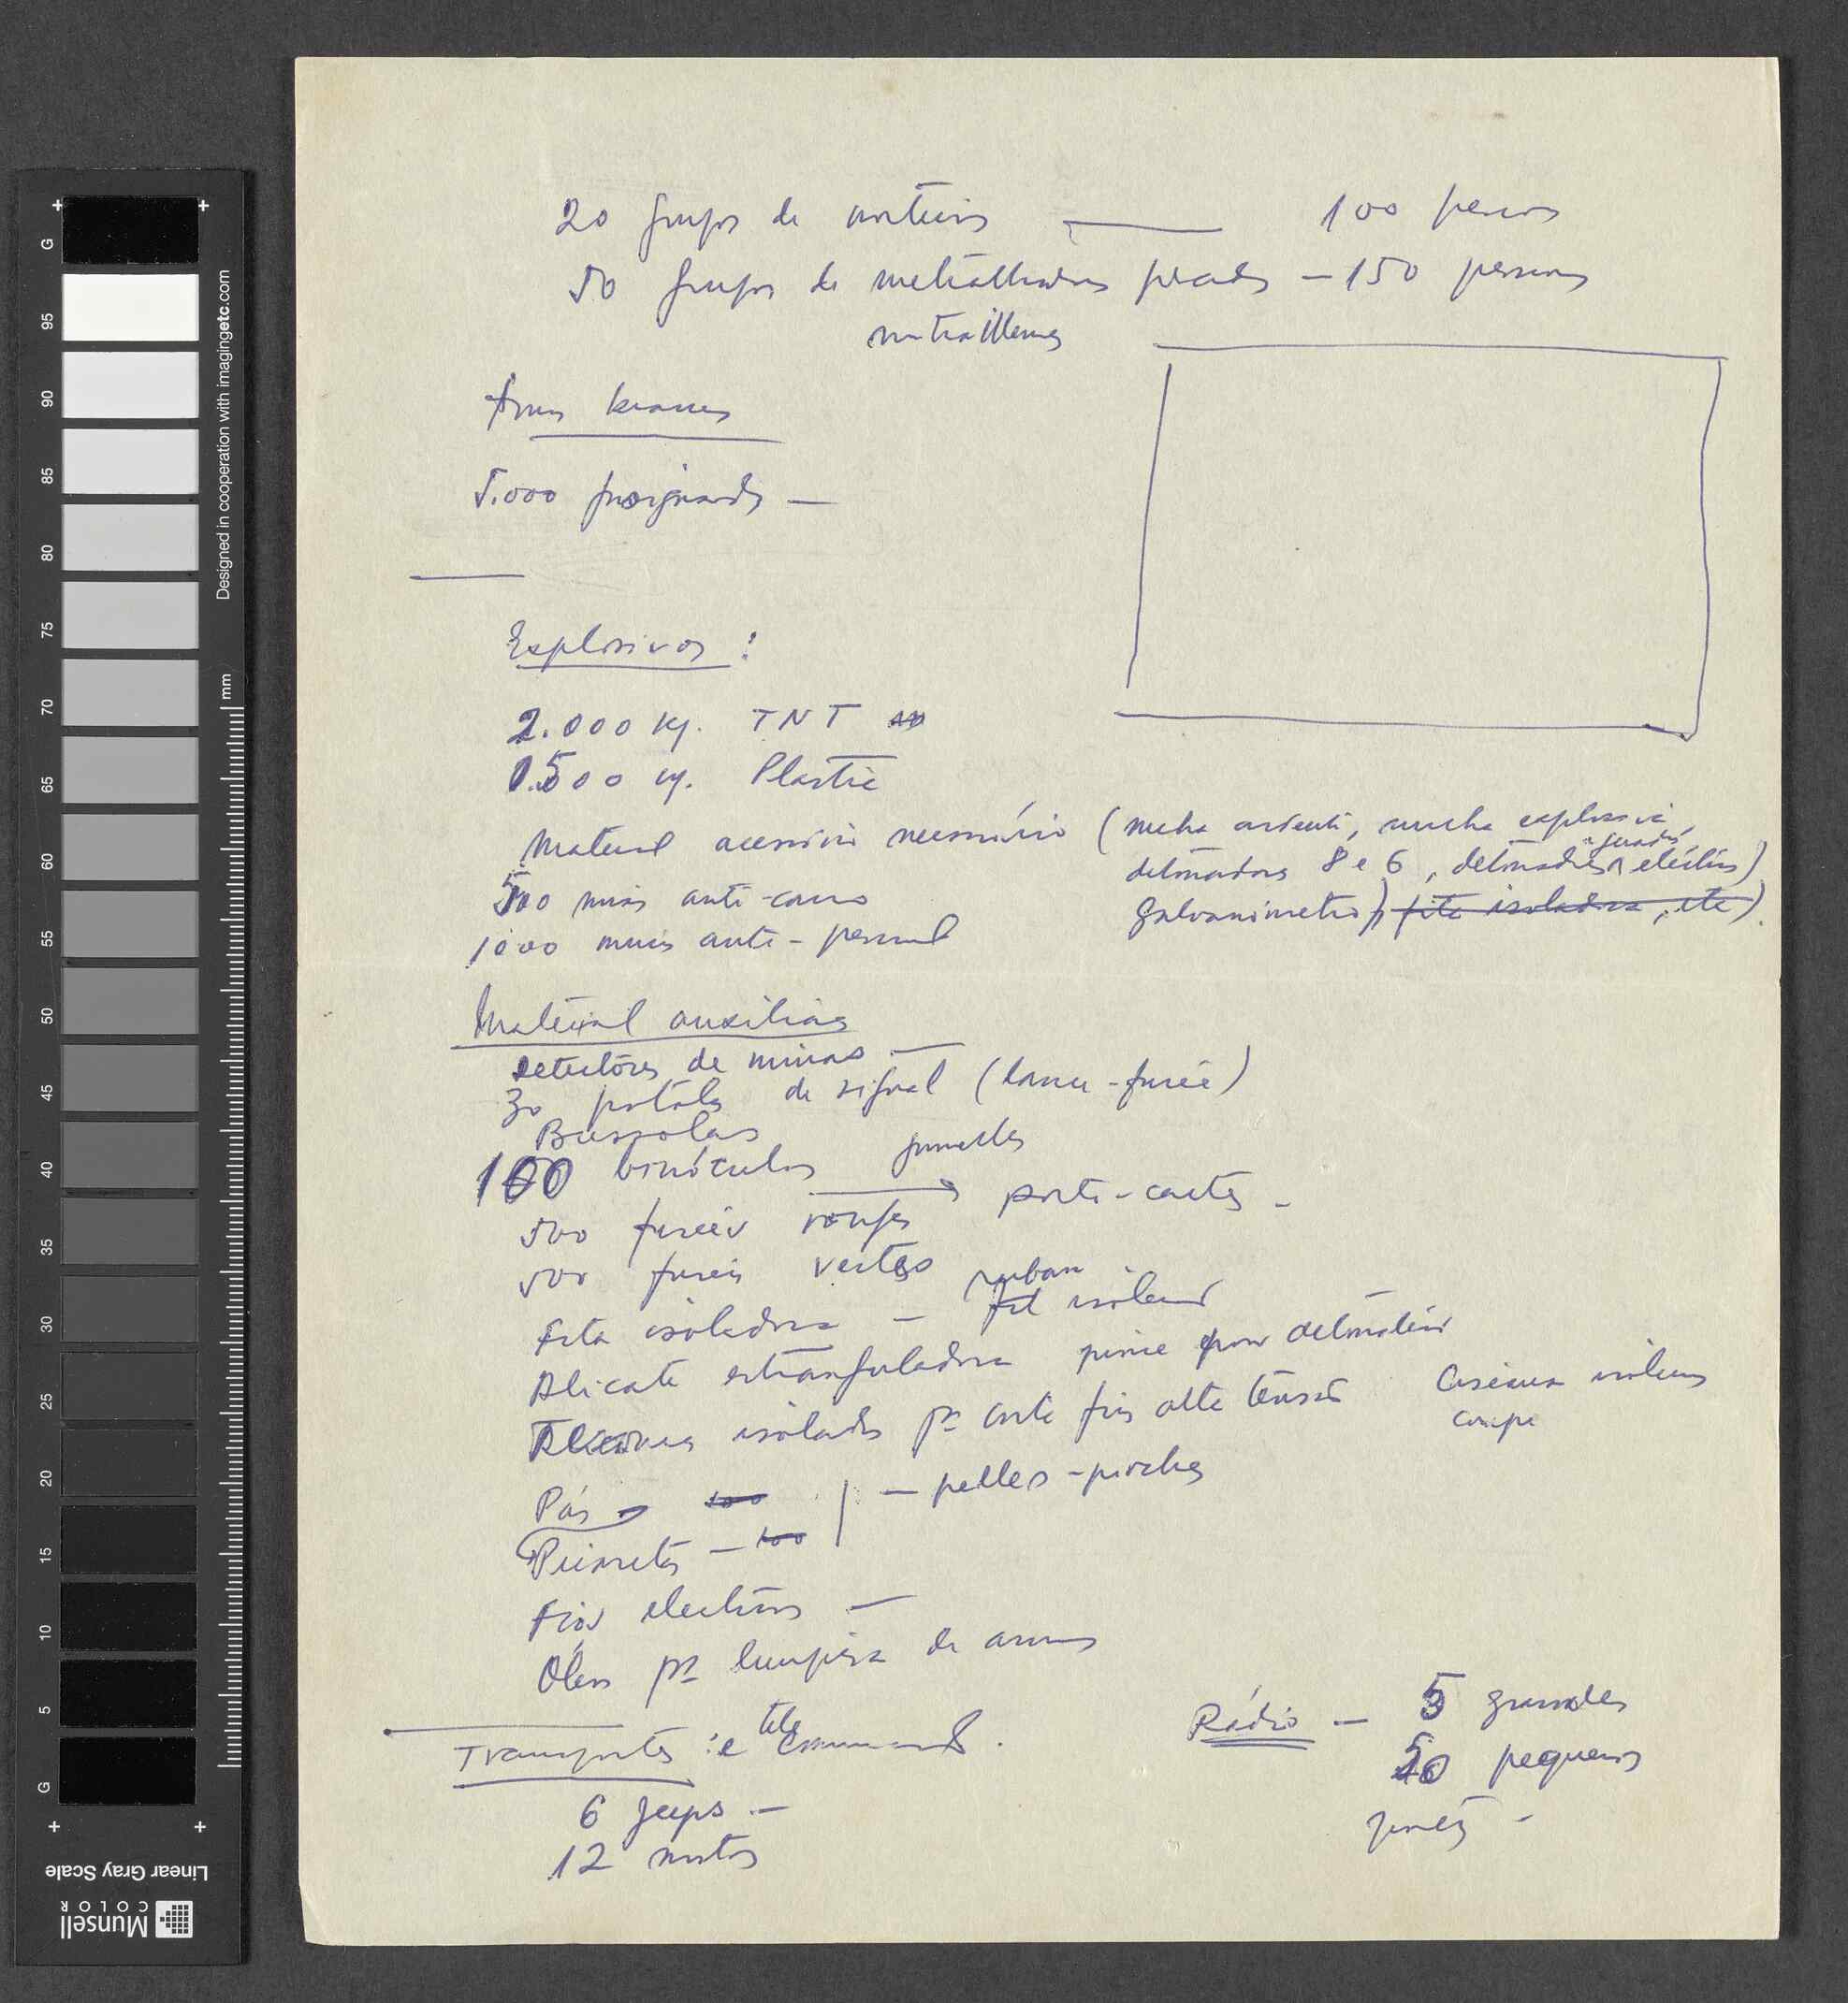 20 grupos de morteiros — 100 pessoas
50 grupos de metralhadoras pesadas — 150 pessoas
mitrailleuses
Armas brancas
5.000 punhais —
Explosivos :
2.000 kg. TNT
1.500 kg. Plastic
Material acessório necessário (mecha ardente, mecha explosiva,
detonadores 8 e 6, detonadores eléctricos)
galvanómetro) fita isoladora, etc).
500 minas anti-carro
1000 minas anti-pessoal
Material auxiliar
Detectores de minas —
30 pistolas de signal (lance-fusée)
Bussolas
100 binóculos jumelles
porte-cartes -
500 fusées rouges
500 fusées vertes
Fita isoladora — ruban
fil isolant
Alicate estranguladora pince pour détonateur
isoladas pª corte fios alta tensão Ciseaux isolants
coupe
Pás 100 — pelles - pioches
Picaretas — 100
Fios electricos —
Óleos pª limpeza de armas
Transportes : e tele
6 Jeeps —
12 motos
Rádio — 5 grandes
50 pequenos